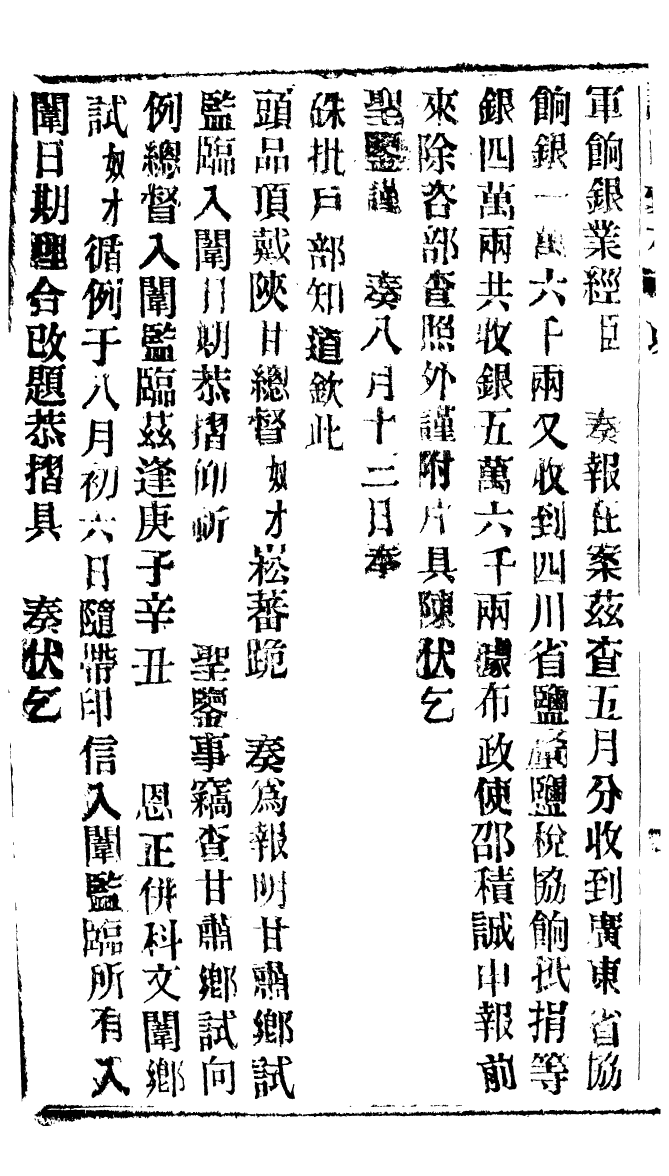 軍餉銀業經臣　奏報在案茲查五月分收到廣東省協
餉銀一萬六千兩又收到四川省鹽釐鹽稅協餉抵捐等
銀四萬兩共收銀五萬六千兩據布政使邵積誠申報前
來除咨部查照外謹附片具陳伏乞
聖鑒謹　奏八月十二日奉
硃批戶部知道欽此
頭品頂戴陜甘總督奴才崧蕃跪　奏爲報明甘肅鄉試
監臨入闈日期恭摺仰祈　聖鑒事竊查甘肅鄉試向
例總督入闈監臨茲逢庚子辛丑　恩正併科文闈鄉
試奴才循例于八月初六日隨帶印信入闈監臨所有入
闈日期理合改題恭摺具　奏伏乞